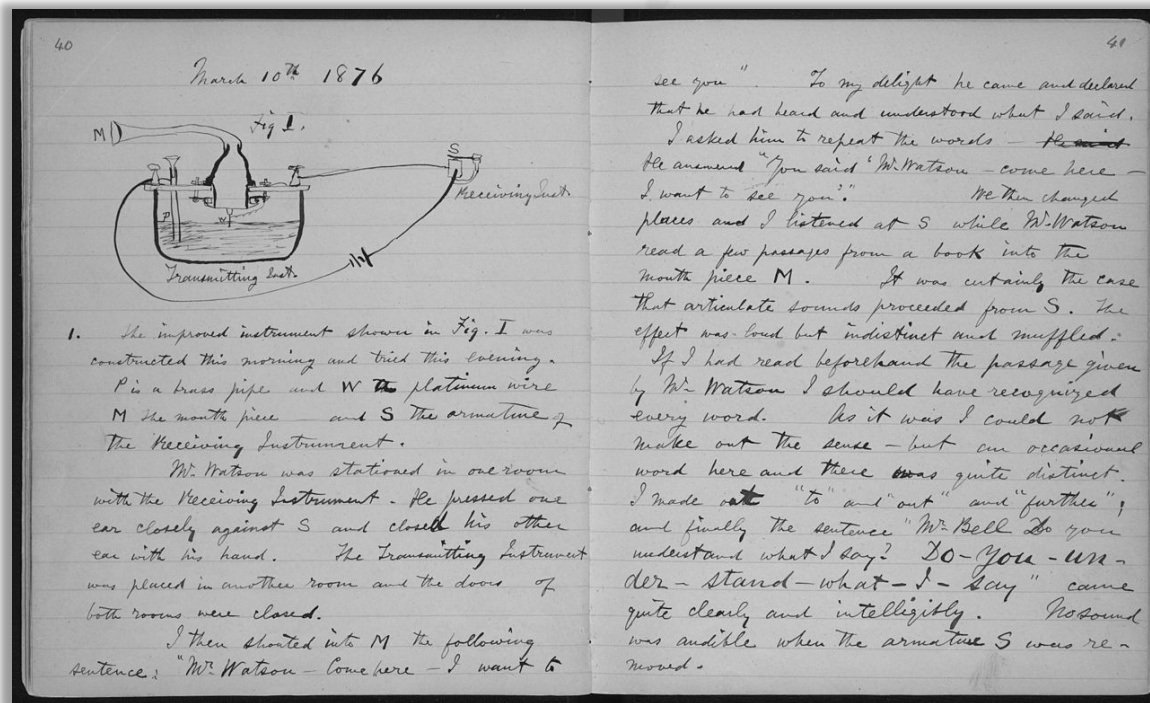 40
March 10th 1876
Fig 1.
M
S
Receiving Inst.
P
W
Transmitting Inst.
1. The improved instrument shown in Fig. I was
constructed this morning and tried this evening.
P is a brass pipe and W the platinum wire
M the mouth piece and S the armature of
the Receiving Instrument.
Mr. Watson was stationed in one room
with the Receiving Instrument. He pressed one
ear closely against S and closed his other
ear with his hand. The Transmitting Instrument
was placed in another room and the doors of
both rooms were closed.
I then shouted into M the following
sentence: "Mr. Watson – Come here – I want to
41
see you". To my delight he came and declared
that he had heard and understood what I said.
I asked him to repeat the words –
He answered "You said 'Mr. Watson – come here –
I want to see you'." We then changed
places and I listened at S while Mr. Watson
read a few passages from a book into the
mouth piece M. It was certainly the case
that articulate sounds proceeded from S. The
effect was loud but indistinct and muffled.
If I had read beforehand the passage given
by Mr. Watson I should have recognized
every word. As it was I could not
make out the sense – but an occasional
word here and there was quite distinct.
I made out "to" and "out" and "further";
and finally the sentence "Mr. Bell Do you
understand what I say? DO–YOU–un–
der–stand–what–I–say" came
quite clearly and intelligibly. No sound
was audible when the armature S was re–
moved.